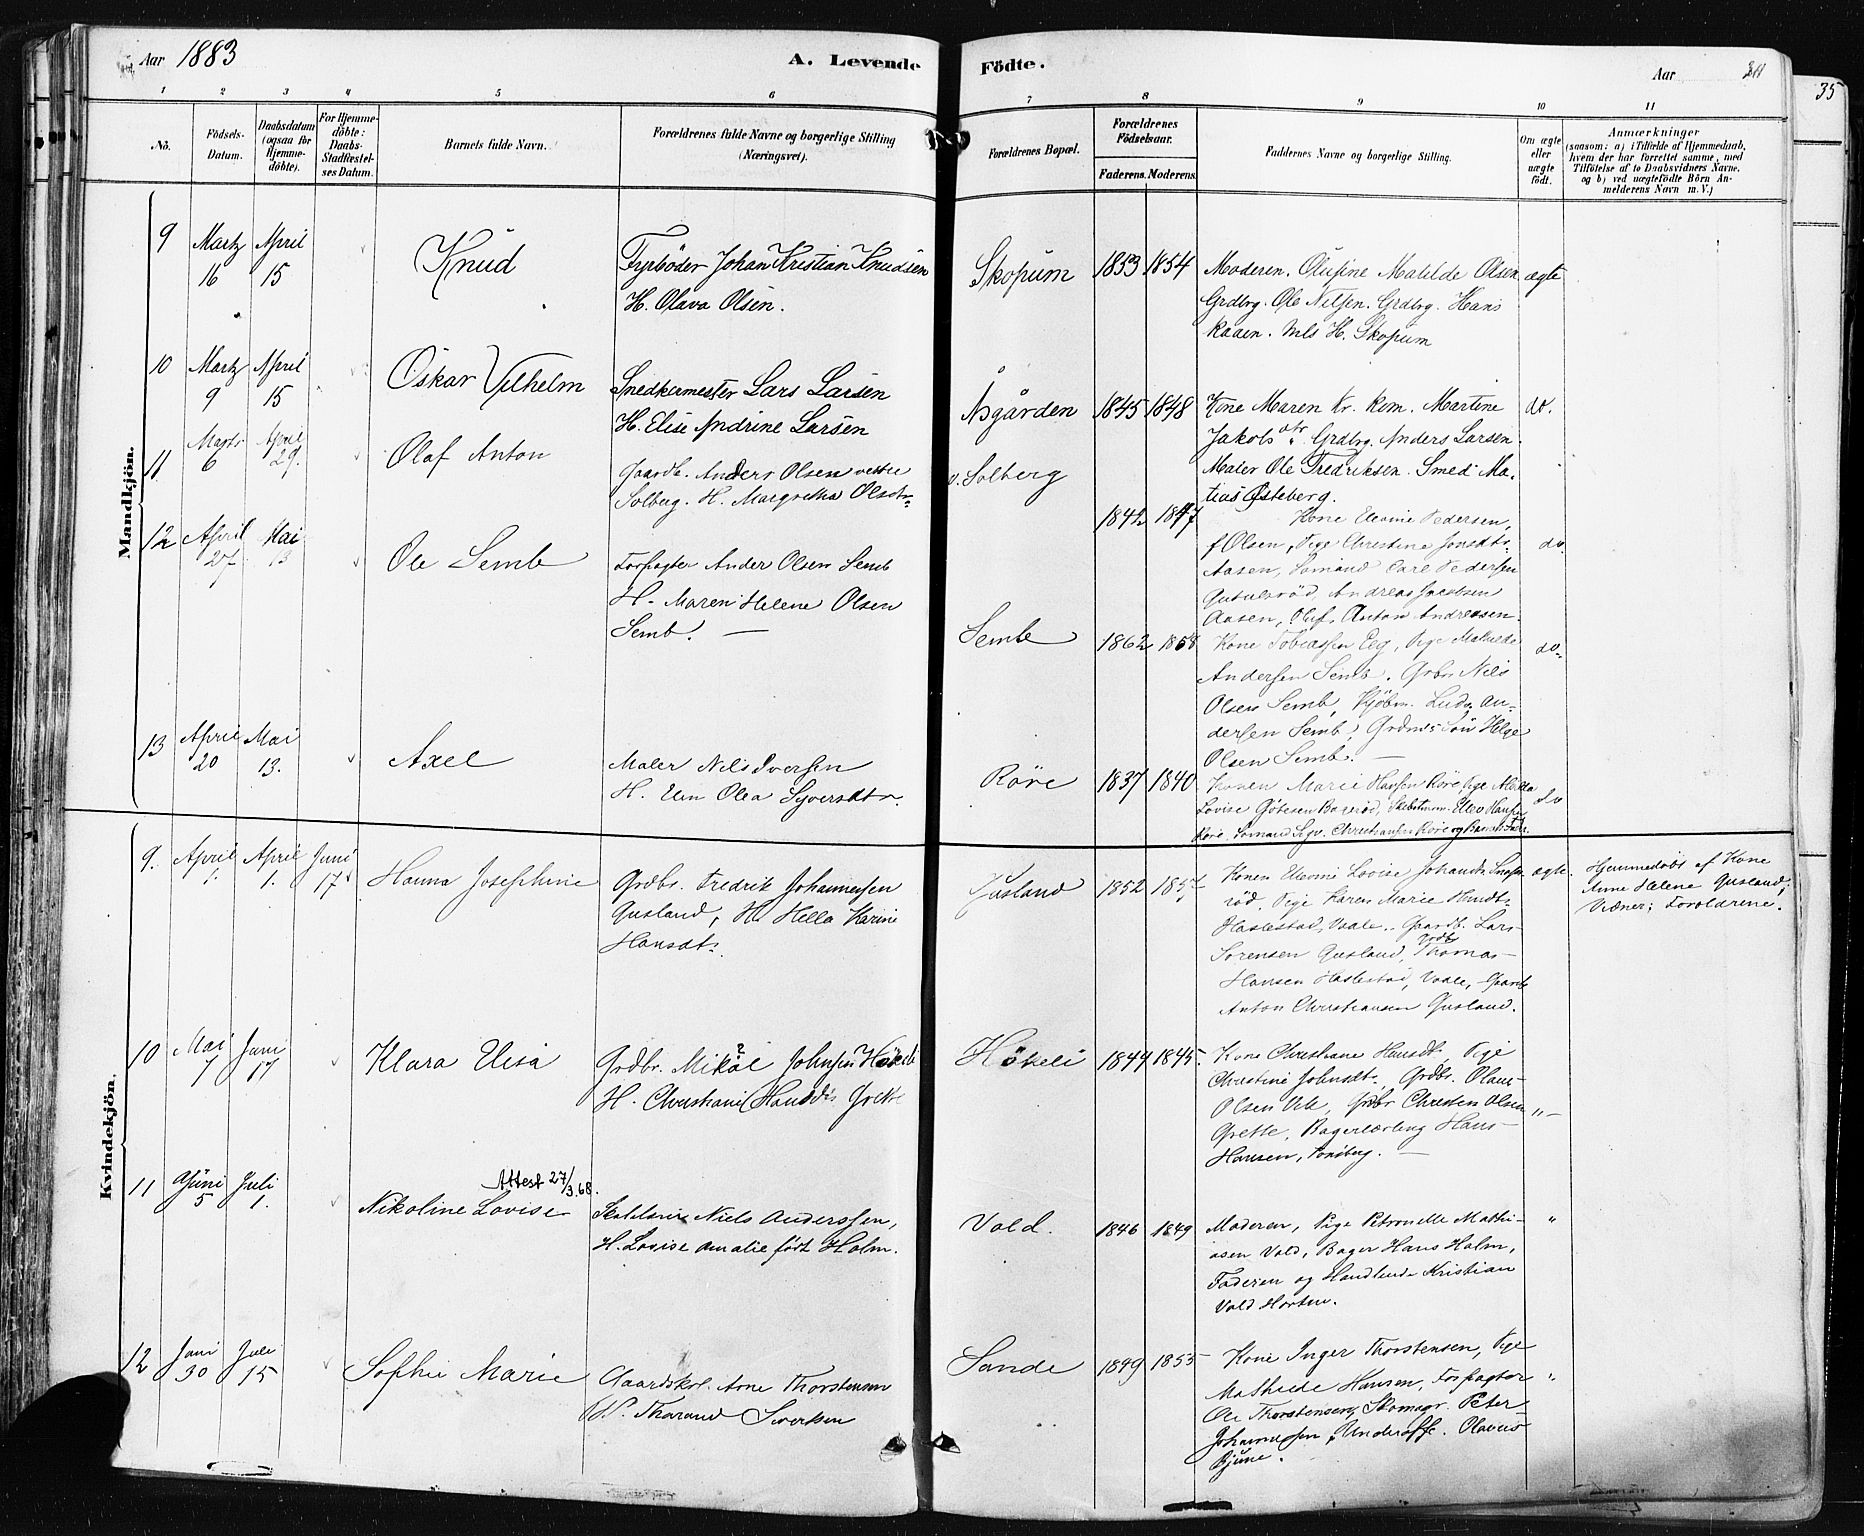 Aar 1883
A. Levende Födte.
Aar
34
35
1 2 3 4 5 6 7 8 9 10 11
No.
Födsels-
Datum.
Daabsdatum
(ogsaa for
Hjemme-
döbte).
For Hjemme-
döbte:
Daabs-
Stadfæstel-
ses Datum.
Barnets fulde Navn.
Forældrenes fulde Navne og borgerlige Stilling
(Næringsvei).
Forældrenes Bopæl.
Forældrenes
Födselsaar.
Faderens. Moderens.
Faddernes Navne og borgerlige Stilling.
Om ægte
eller
uægte
födt.
Anmærkninger
(saasom: a) i Tilfælde af Hjemmedaab,
hvem der har forrettet samme, med
Tilföielse af to Daabsvidners Navne,
og b) ved uægtefödte Börn An-
melderens Navn m. V.)
Mandkjön.
9
Martz
16
April
15
Knud
Fyrböder Johan Kristian Knudsen
H. Olava Olsen.
Skopum
1853 1854
Moderen. Olufine Matilde Olsen
Grdbrg. Ole Nilsen. Grdbrg. Hans
Raaen. Mls H. Skopum
ægte
10
Martz
9
April
15
Oskar Vilhelm
Snedkermester Lars Larsen
H. Elise Andrine Larsen
Åsgården
1845 1848
Kone Maren Kr. Rom. Martine
Jakobs dtr. Grdbrg. Anders Larsen.
Maler Ole Fredriksen. Smed Ma-
tias Österberg.
do.
11
Marts
6
April
29.
Olaf Anton
Gaardb. Anders Olsen vestre
Solberg. H. Margrethe Olsdtr.
v. Solberg
1842 1847
Kone Elevine Pedersen,
f Olsen, Pige Christine Jonsdtr.
Aasen, Sömand Carl Pedersen
Andreas Jacobsen
Aasen, Oluf Anton Andreasen.
do.
12
April
27
Mai
13
Ole Semb
Forpagter Ander Olsen Semb
H. Maren Helene Olsen
Semb. —
Semb
1862 1858
Kone Tobiassen Eeg, Pige Mathilde
Andersen Semb. Grbr. Nils
Olsen Semb, Kjöbm. Ludv. An-
dersen Semb, Grdmds Sön Helge
Olsen Semb. —
do.
13
April
20
Mai
13.
Axel
Maler Nils Iversen
H. Elen Olea Syversdtr.
Röre
1837 1840
Konen Marie Hansen Röre Pige
Lovise Gjötesen Bageröd, Skibstmm. Elev Hansen
Röre. Sömand Sigv. Christiansen Röre og Barnets Fader.
do
Kvindekjön.
9.
April
1.
April
1.
Juni
17
Hanna Josephine
Grdbr. Fredrik Johannessen
Gusland, H. Hella Karine
Hansdtr.
Gusland
1852 1857
Konen Elevine Lovise Johansdtr.
röd, Pige Karen Marie Knudtr.
Haslestad, Vaale. Gaardb. Lars
Sorensen Gusland, Grdb. Thomas
Hansen Haslestad, Vaale, Gaardb
Anton Christiansen Gusland.
ægte.
Hjemmedöbt af Kone
Anne Helene Gusland;
Vidner: Forældrene.
10
Mai
7
Juni
17
Klara Elisa
Grdbr. Mikäl Johnsen Hökeli
H. Christiane Hansdtr.
Hökeli
1844 1845.
Kone Christiane Hansdtr. Pige
Christine Johnsdtr., Grdbr. Olaus
Olsen Vik, Grdbr Christen Olsen
Grette, Bagerlærling Hans
Hansen, Tönsberg. —
„ —
11
Juni
5
Juli
1.
Attest 27/3.68.
Nikoline Lovise
Niels Anderssen,
H. Lovise Amalie född Holm.
Vold.
1846 1849
Moderen, Pige Petronelle Matthi-
asen Vold, Bager Hans Holm,
Faderen og Handlende Kristian
Vold Horten.
"
12
Juni
30
Juli
15
Sophie Marie
Gaardskol. Arne Thorstensen
H. Tharand Siversen
Sande
1849 1855
Kone Inger Thorstensen, Pige
Mathilde Hansen, Forpagter
Ole Thorstensen, Skomagr. Peter
Johannessen, Underoffc. Olavus
Bjune.
"